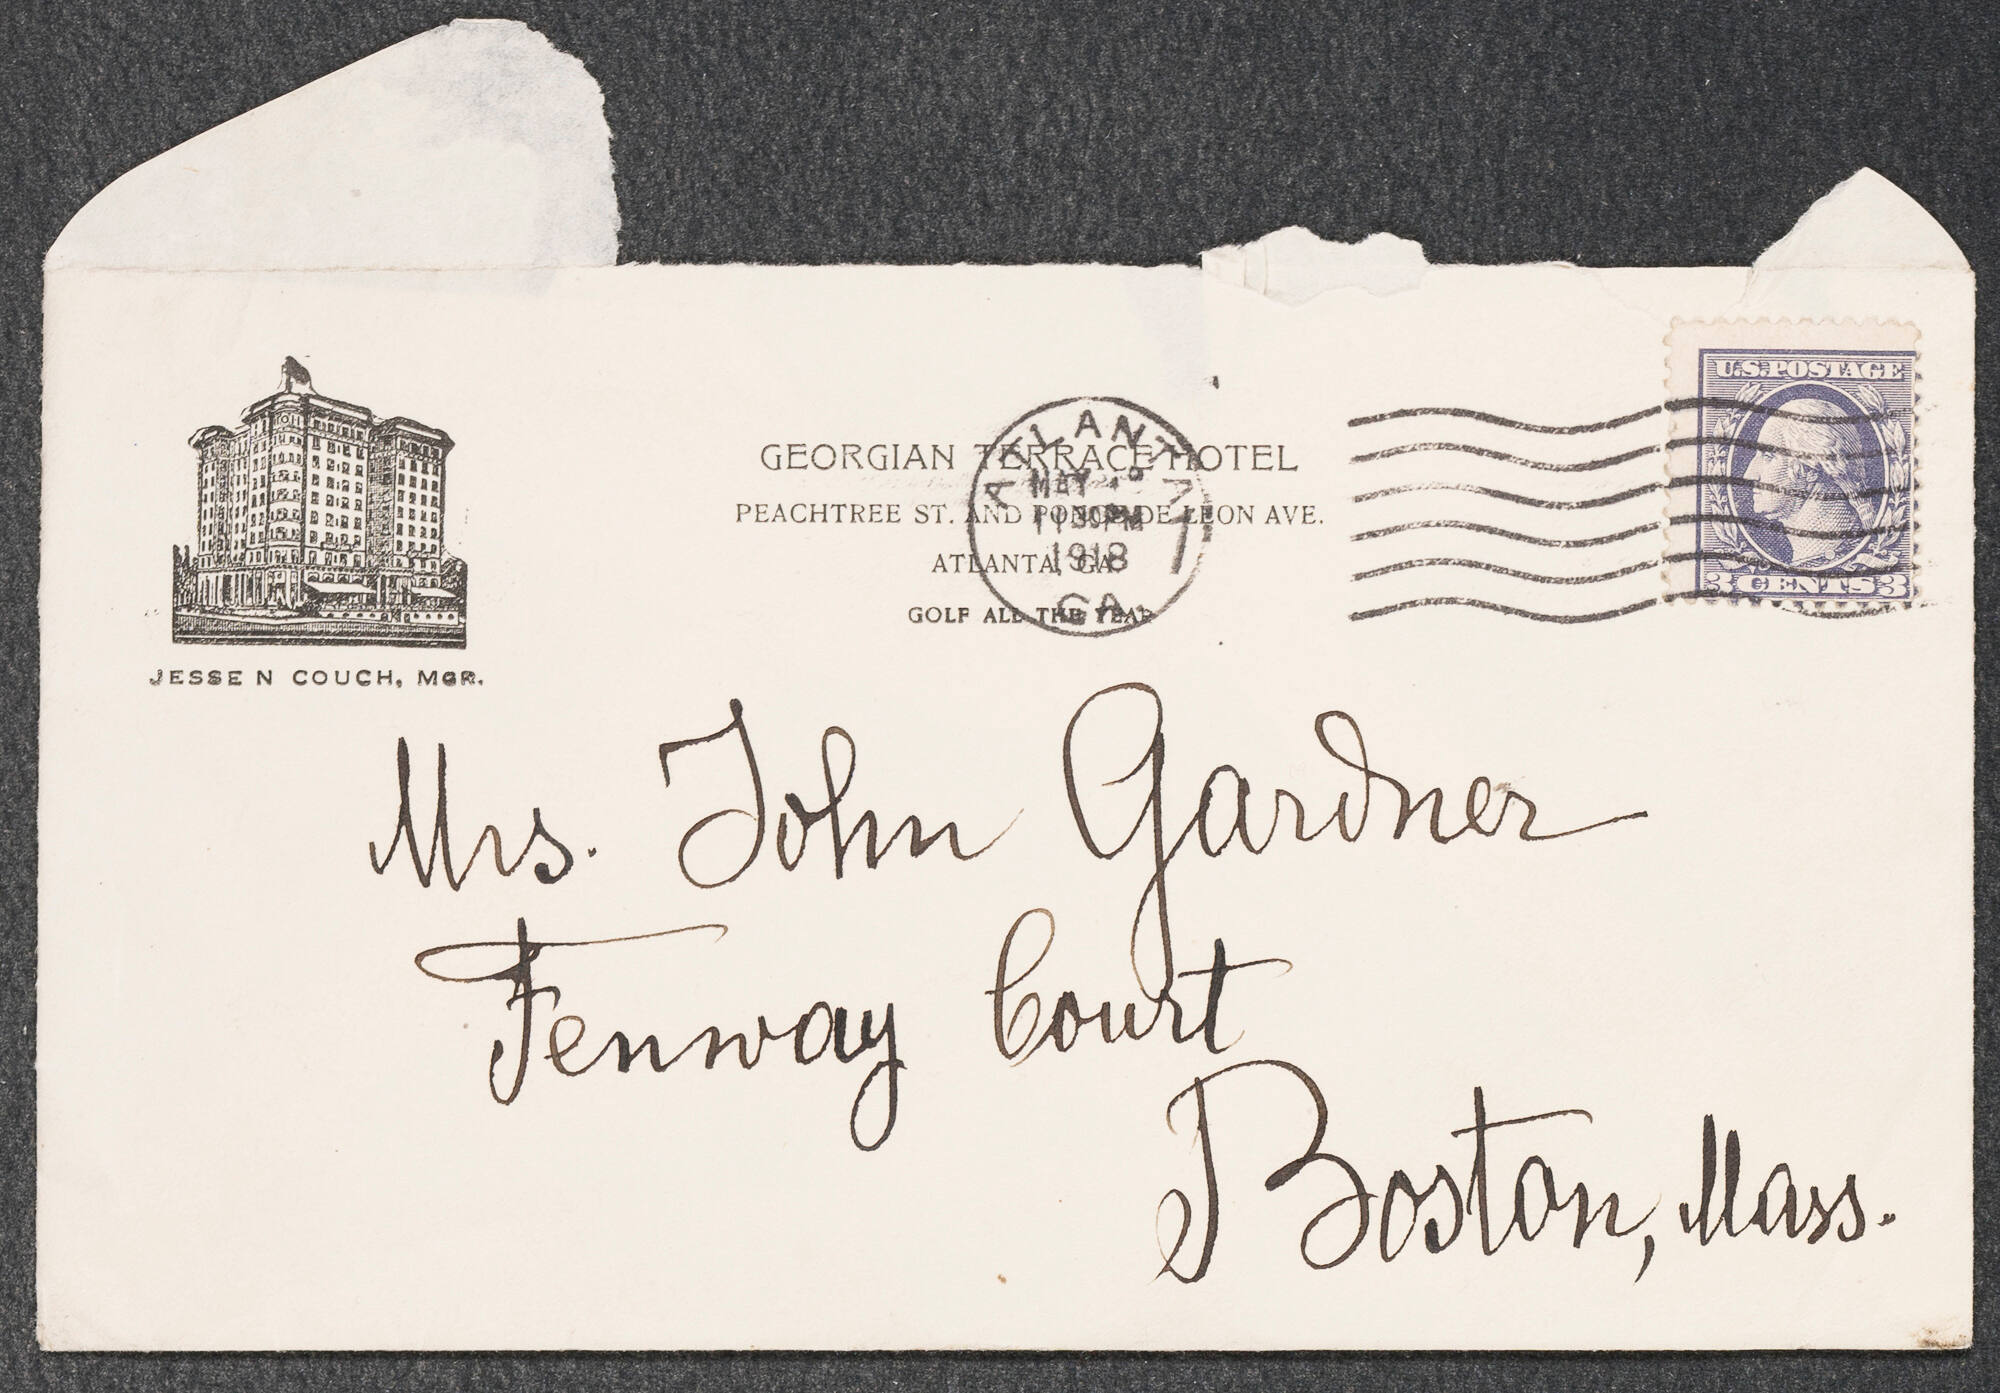 JESSE N COUCH, MGR.
GEORGIAN TERRACE HOTEL
PEACHTREE ST. AND PONCE DE LEON AVE.
ATLANTA, GA.
GOLF ALL THE YEAR
ATLANTA
MAY
1130PM
1918
GA.
U.S. POSTAGE
3 CENTS 3
Mrs. John Gardner
Fenway Court
Boston, Mass.